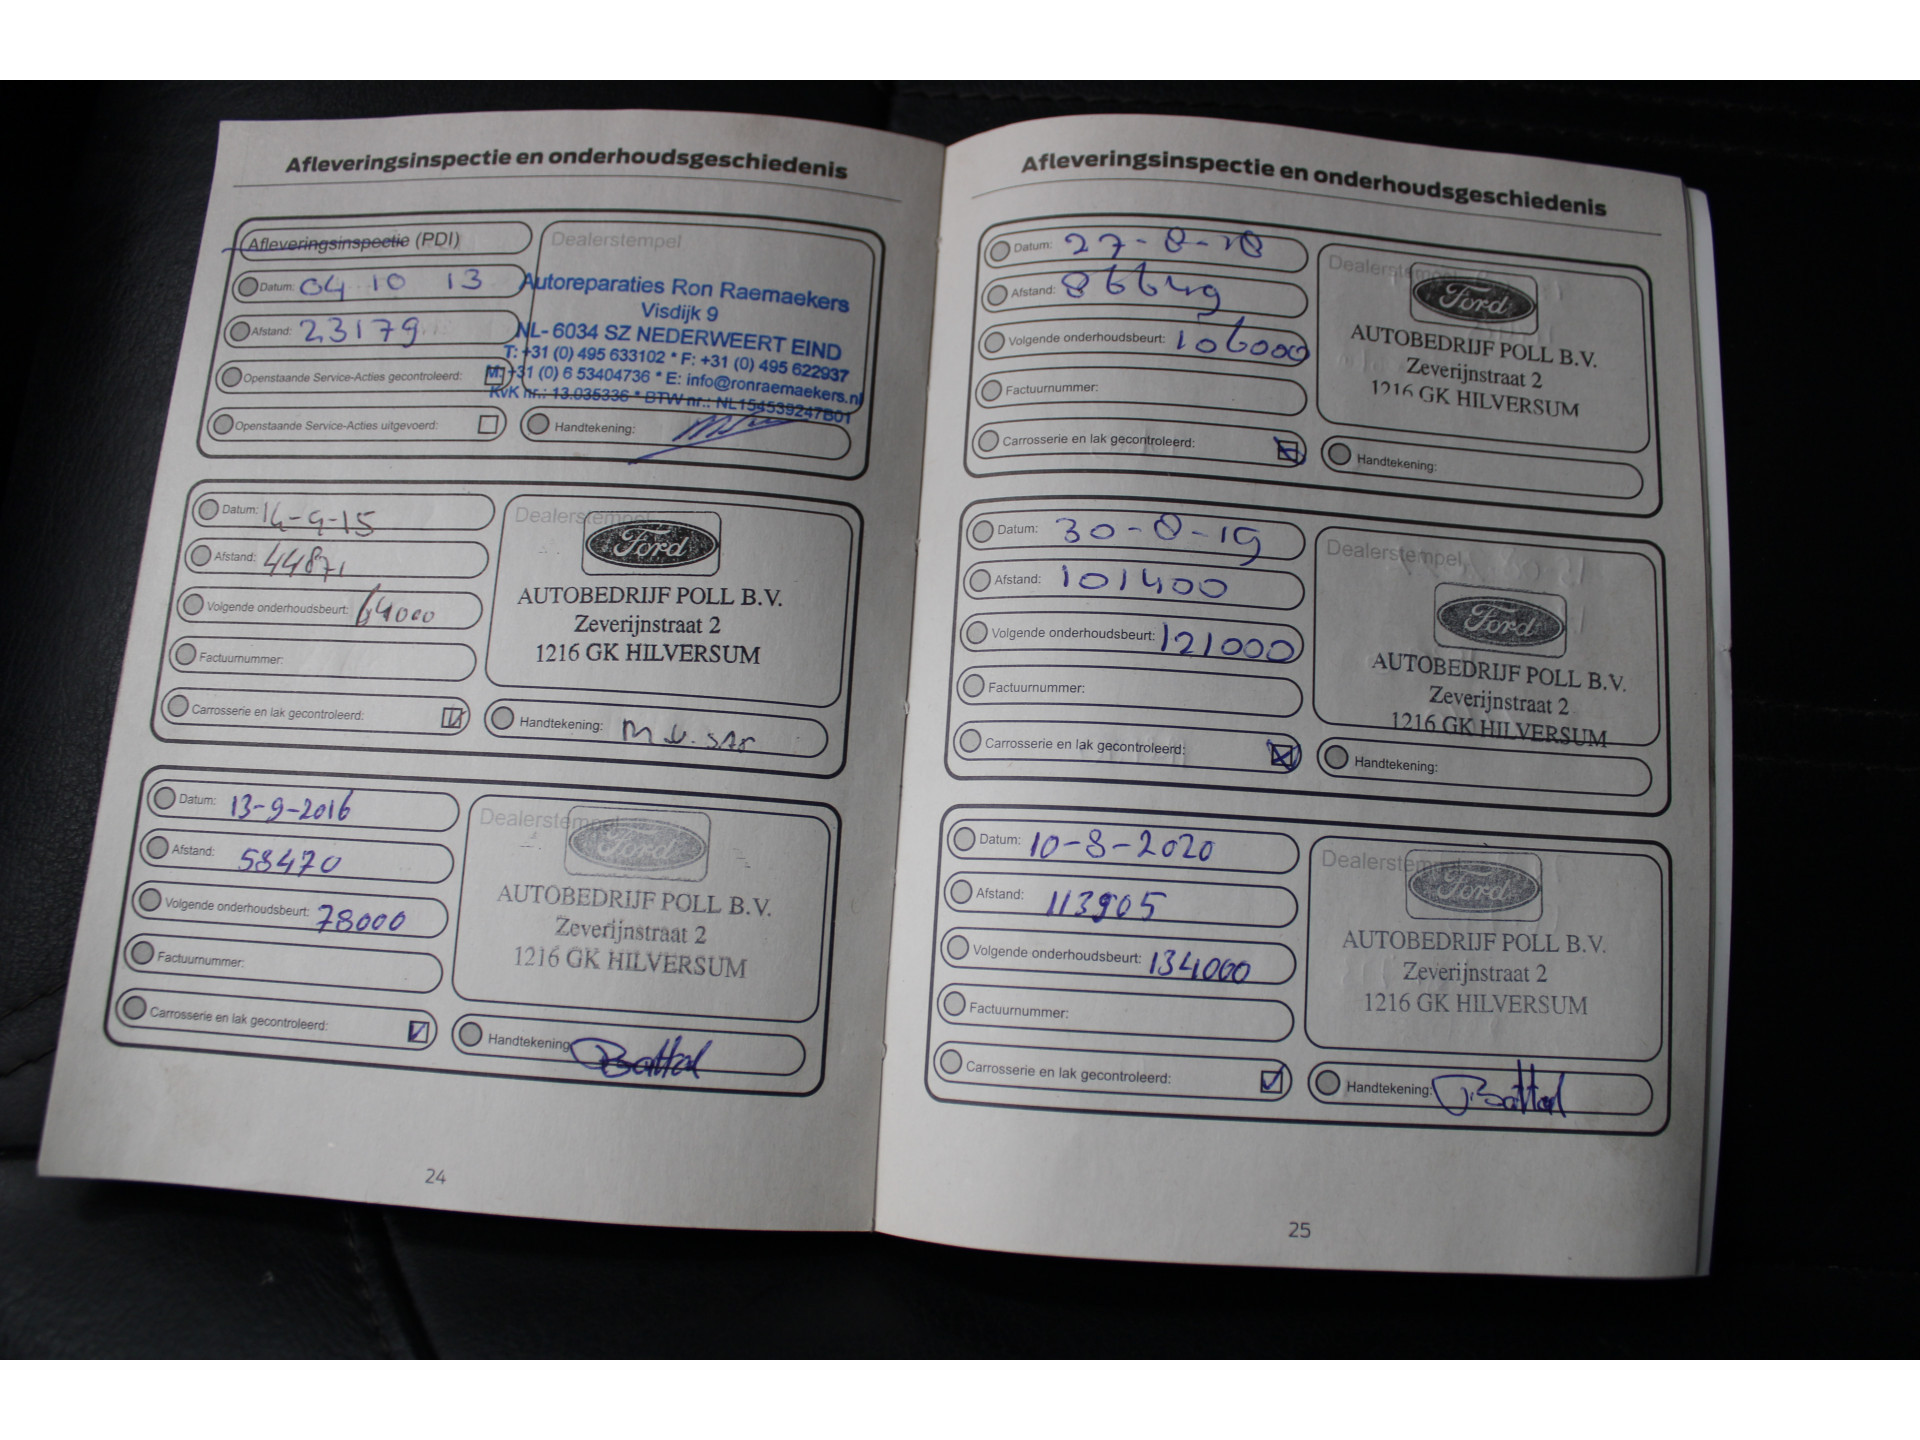 Afleveringsinspectie en onderhoudsgeschiedenis
Afleveringsinspectie (PDI)
Datum: 04 10 13
Afstand: 23179
Openstaande Service-Acties gecontroleerd:
Openstaande Service-Acties uitgevoerd:
Dealerstempel
Autoreparaties Ron Raemaekers
Visdijk 9
NL- 6034 SZ NEDERWEERT EIND
T: +31 (0) 495 633102 * F: +31 (0) 495 622937
M: +31 (0) 6 53404736 * E: info@ronraemaekers.nl
KvK nr.: 13.035336 * BTW nr.: NL154539247B01
Handtekening:
Datum: 14-9-15
Afstand: 44871
Volgende onderhoudsbeurt: 64000
Factuurnummer:
Carrosserie en lak gecontroleerd:
Dealerstempel
Ford
AUTOBEDRIJF POLL B.V.
Zeverijnstraat 2
1216 GK HILVERSUM
Handtekening:
Datum: 13-9-2016
Afstand: 58470
Volgende onderhoudsbeurt: 78000
Factuurnummer:
Carrosserie en lak gecontroleerd:
Dealerstempel
Ford
AUTOBEDRIJF POLL B.V.
Zeverijnstraat 2
1216 GK HILVERSUM
Handtekening: Battal
24
Afleveringsinspectie en onderhoudsgeschiedenis
Datum: 27-8-18
Afstand: 86649
Volgende onderhoudsbeurt: 106000
Factuurnummer:
Carrosserie en lak gecontroleerd:
Dealerstempel
Ford
AUTOBEDRIJF POLL B.V.
Zeverijnstraat 2
1216 GK HILVERSUM
Handtekening:
Datum: 30-8-19
Afstand: 101400
Volgende onderhoudsbeurt: 121000
Factuurnummer:
Carrosserie en lak gecontroleerd:
Dealerstempel
Ford
AUTOBEDRIJF POLL B.V.
Zeverijnstraat 2
1216 GK HILVERSUM
Handtekening:
Datum: 10-8-2020
Afstand: 113905
Volgende onderhoudsbeurt: 134000
Factuurnummer:
Carrosserie en lak gecontroleerd:
Dealerstempel
Ford
AUTOBEDRIJF POLL B.V.
Zeverijnstraat 2
1216 GK HILVERSUM
Handtekening: Battal
25